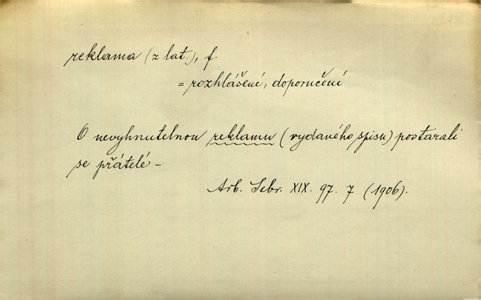 reklama (z lat.), f.
= rozhlášení, doporučení
O nevyhnutelnou reklamu (vydaného spisu) postarali
se přátelé –
Arb. Sebr. XIX. 97. 7 (1906).